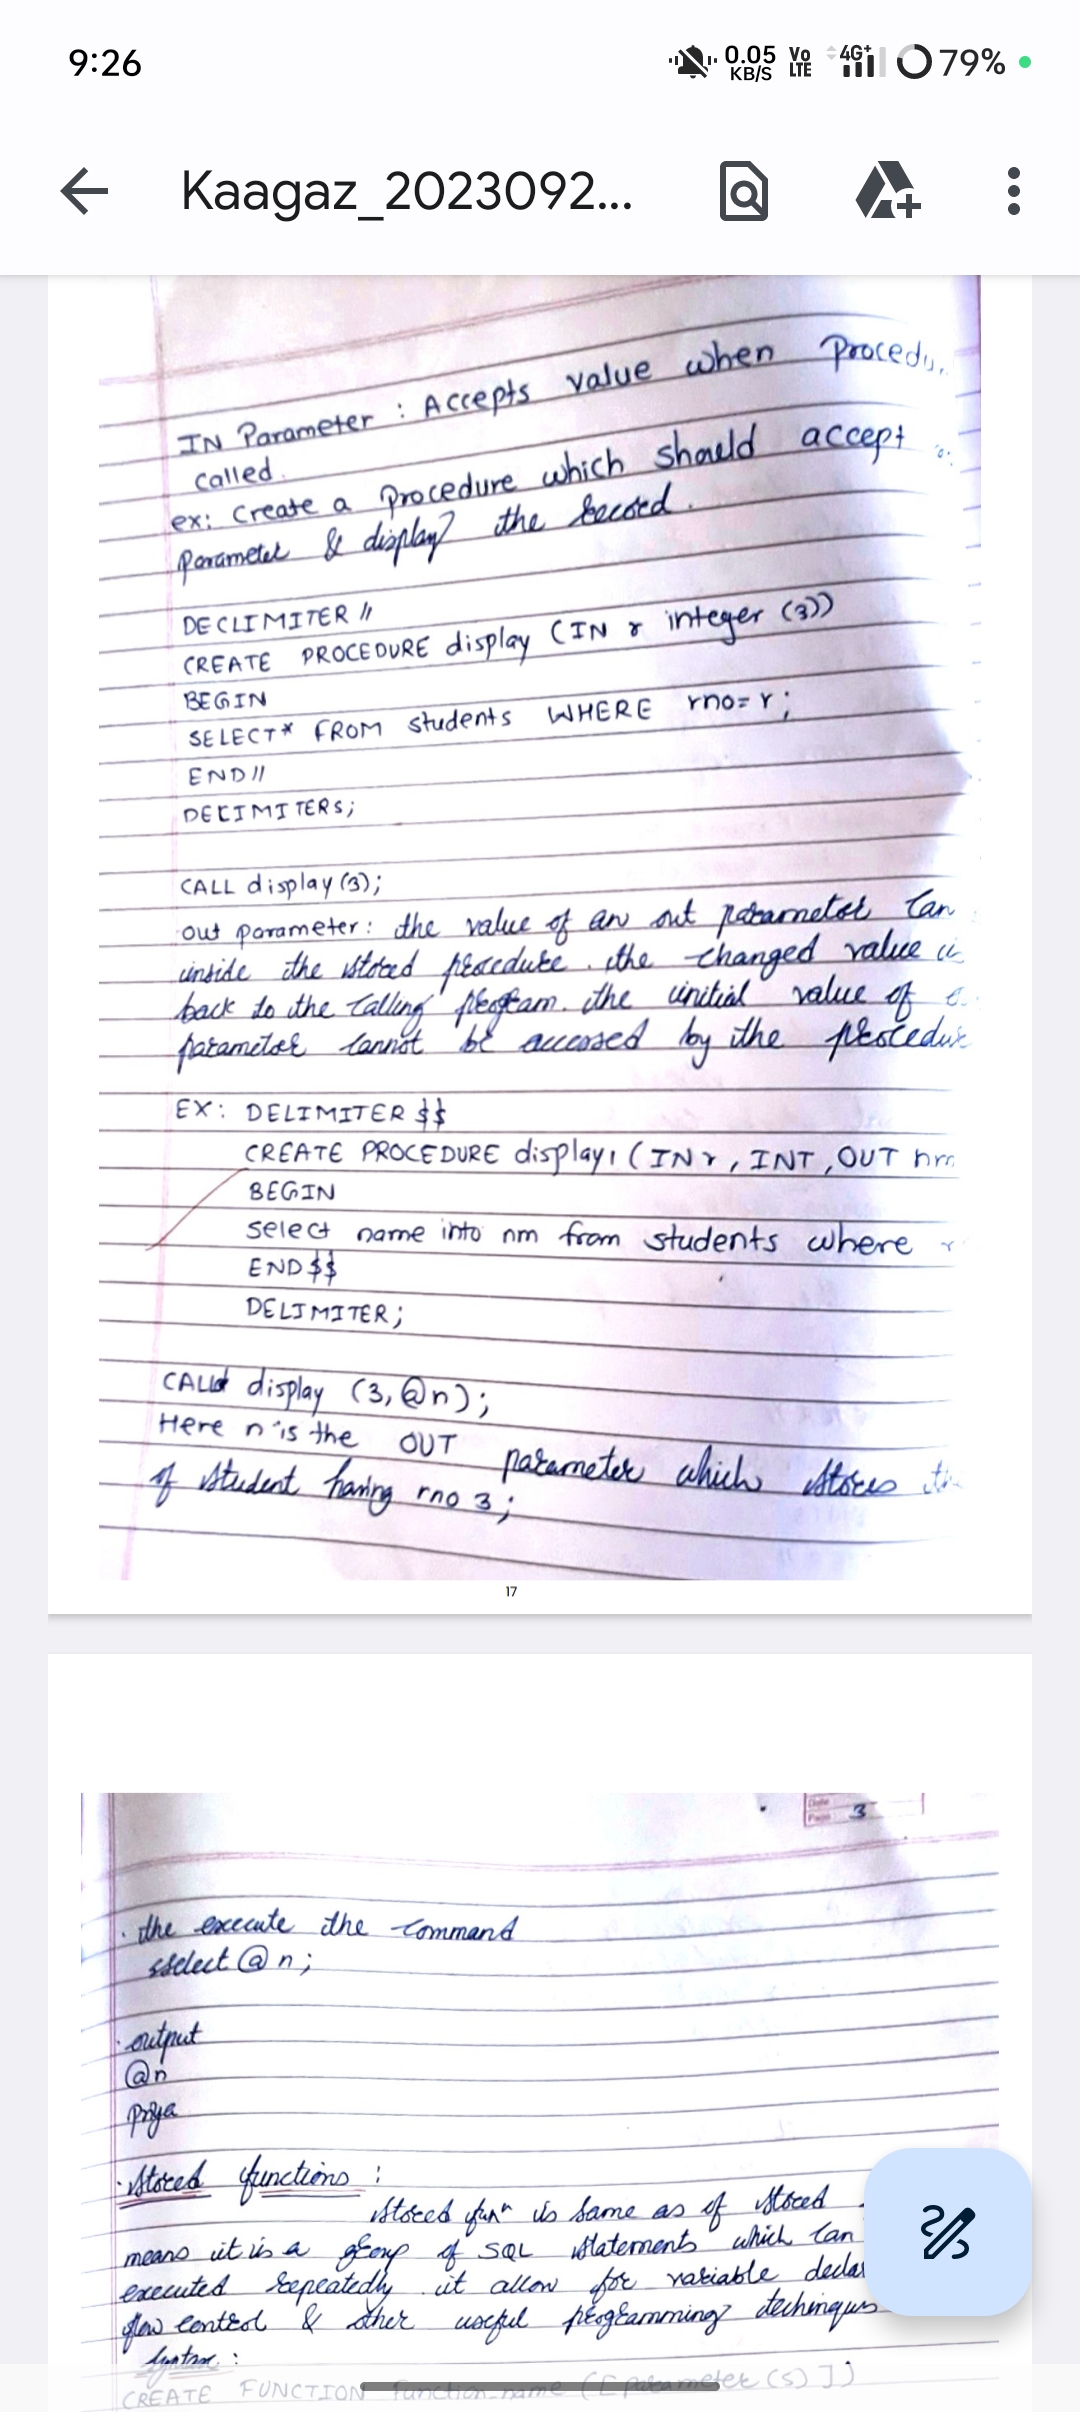 9:26
0.05 KB/S Vo LTE 4G+ 79%
Kaagaz_2023092...
IN Parameter : Accepts value when Procedu
called.
ex: Create a procedure which should accept
parameter & display the record.
DECLIMITER //
CREATE PROCEDURE display (IN r integer (3))
BEGIN
SELECT* FROM students WHERE rno=r;
END //
DELIMITERS;
CALL display (3);
out parameter: the value of an out parameter can
inside the stored procedure. the changed value is
back to the calling program. the initial value of
parameter cannot be accessed by the procedure
EX: DELIMITER $$
CREATE PROCEDURE display1 (IN r, INT, OUT nm
BEGIN
select name into nm from students where
END $$
DELIMITER;
CALL display (3, @n);
Here n is the OUT parameter which stores th
of student having rno 3;
17
3
. the execute the command
sselect @n;
. output
@n
priya
. Stored functions :
Stored funⁿ is same as of stored
means it is a group of SQL statements which can
executed repeatedly. it allow for variable declar
flow control & other useful programming techinques
Syntax :
CREATE FUNCTION function-name ([parameter (s)])